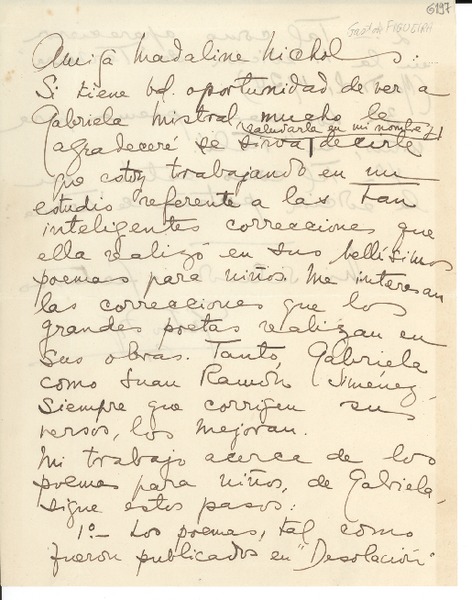 6197
Gastón FIGUEIRA
Amiga Madaline Nichols:
Si tiene Vd. oportunidad de ver a
Gabriela Mistral, mucho le
agradeceré se sirva saludarla en mi nombre y decirle
que estoy trabajando en un
estudio referente a las tan
inteligentes correcciones que
ella realizó en sus bellísimos
poemas para niños. Me interesan
las correcciones que los
grandes poetas realizan en
sus obras. Tanto Gabriela
como Juan Ramón Jimenez,
siempre que corrigen sus
versos, los mejoran.
Mi trabajo acerca de los
poemas para niños, de Gabriela,
sigue estos pasos:
1º— Los poemas, tal como
fueron publicados en "Desolación"